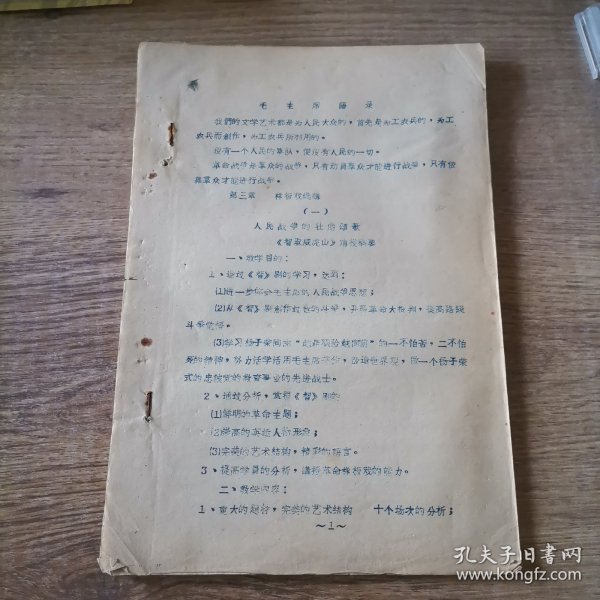 毛主席語录
我們的文学艺术都是为人民大众的，首先是为工农兵的，为工
农兵而創作，为工农兵所利用的。
没有一个人民的軍队，便没有人民的一切。
革命战争是羣众的战争，只有动員羣众才能进行战争，只有依
靠羣众才能进行战争。
第三章 样板戏选講
（一）
人民战争的壮丽頌歌
《智取威虎山》
一、教学目的：
1、通过《智》剧的学习，达到：
⑴进一步体会毛主席的人民战争思想；
⑵从《智》剧創作过程的斗争，开展革命大批判，提高路线
斗争觉悟。
⑶学习杨子荣同志 的一不怕苦，二不怕
死的精神，努力活学活用毛主席著作，改造世界观，做一个杨子荣
式的忠誠党的教育事业的先进战士。
2、通过分析，掌握《智》剧的
⑴鮮明的革命主題；
⑵崇高的英雄人物形象；
⑶完美的艺术結构，精彩的語言。
3、提高学員的分析，講授革命样板戏的能力。
二、教学内容：
1、重大的題材，完美的艺术結构 十个场次的分析；
～1～
孔夫子旧书网
www.kongfz.com